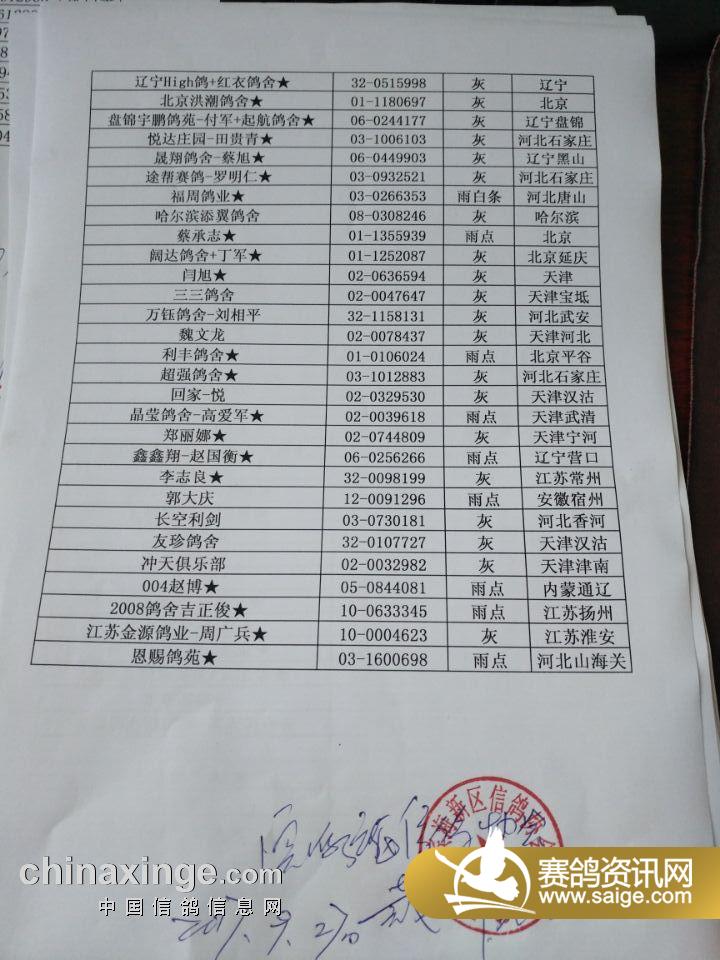 辽宁High鸽+红衣鸽舍★ 32-0515998 灰 辽宁
北京洪潮鸽舍★ 01-1180697 灰 北京
盘锦宇鹏鸽苑-付军+起航鸽舍★ 06-0244177 灰 辽宁盘锦
悦达庄园-田贵青★ 03-1006103 灰 河北石家庄
晟翔鸽舍-蔡旭★ 06-0449903 灰 辽宁黑山
途帮赛鸽-罗明仁★ 03-0932521 灰 河北石家庄
福周鸽业★ 03-0266353 雨白条 河北唐山
哈尔滨添翼鸽舍 08-0308246 灰 哈尔滨
蔡承志★ 01-1355939 雨点 北京
阔达鸽舍+丁军★ 01-1252087 灰 北京延庆
闫旭★ 02-0636594 灰 天津
三三鸽舍 02-0047647 灰 天津宝坻
万钰鸽舍-刘相平 32-1158131 灰 河北武安
魏文龙 02-0078437 灰 天津河北
利丰鸽舍★ 01-0106024 雨点 北京平谷
超强鸽舍★ 03-1012883 灰 河北石家庄
回家-悦 02-0329530 灰 天津汉沽
晶莹鸽舍-高爱军★ 02-0039618 雨点 天津武清
郑丽娜★ 02-0744809 灰 天津宁河
鑫鑫翔-赵国衡★ 06-0256266 雨点 辽宁营口
李志良★ 32-0098199 灰 江苏常州
郭大庆 12-0091296 雨点 安徽宿州
长空利剑 03-0730181 灰 河北香河
友珍鸽舍 32-0107727 灰 天津汉沽
冲天俱乐部 02-0032982 灰 天津津南
004赵博★ 05-0844081 雨点 内蒙通辽
2008鸽舍吉正俊★ 10-0633345 雨点 江苏扬州
江苏金源鸽业-周广兵★ 10-0004623 灰 江苏淮安
恩赐鸽苑★ 03-1600698 雨点 河北山海关
新区信鸽
chinaxinge.com
中国信鸽信息网
赛鸽资讯网
www.saige.com